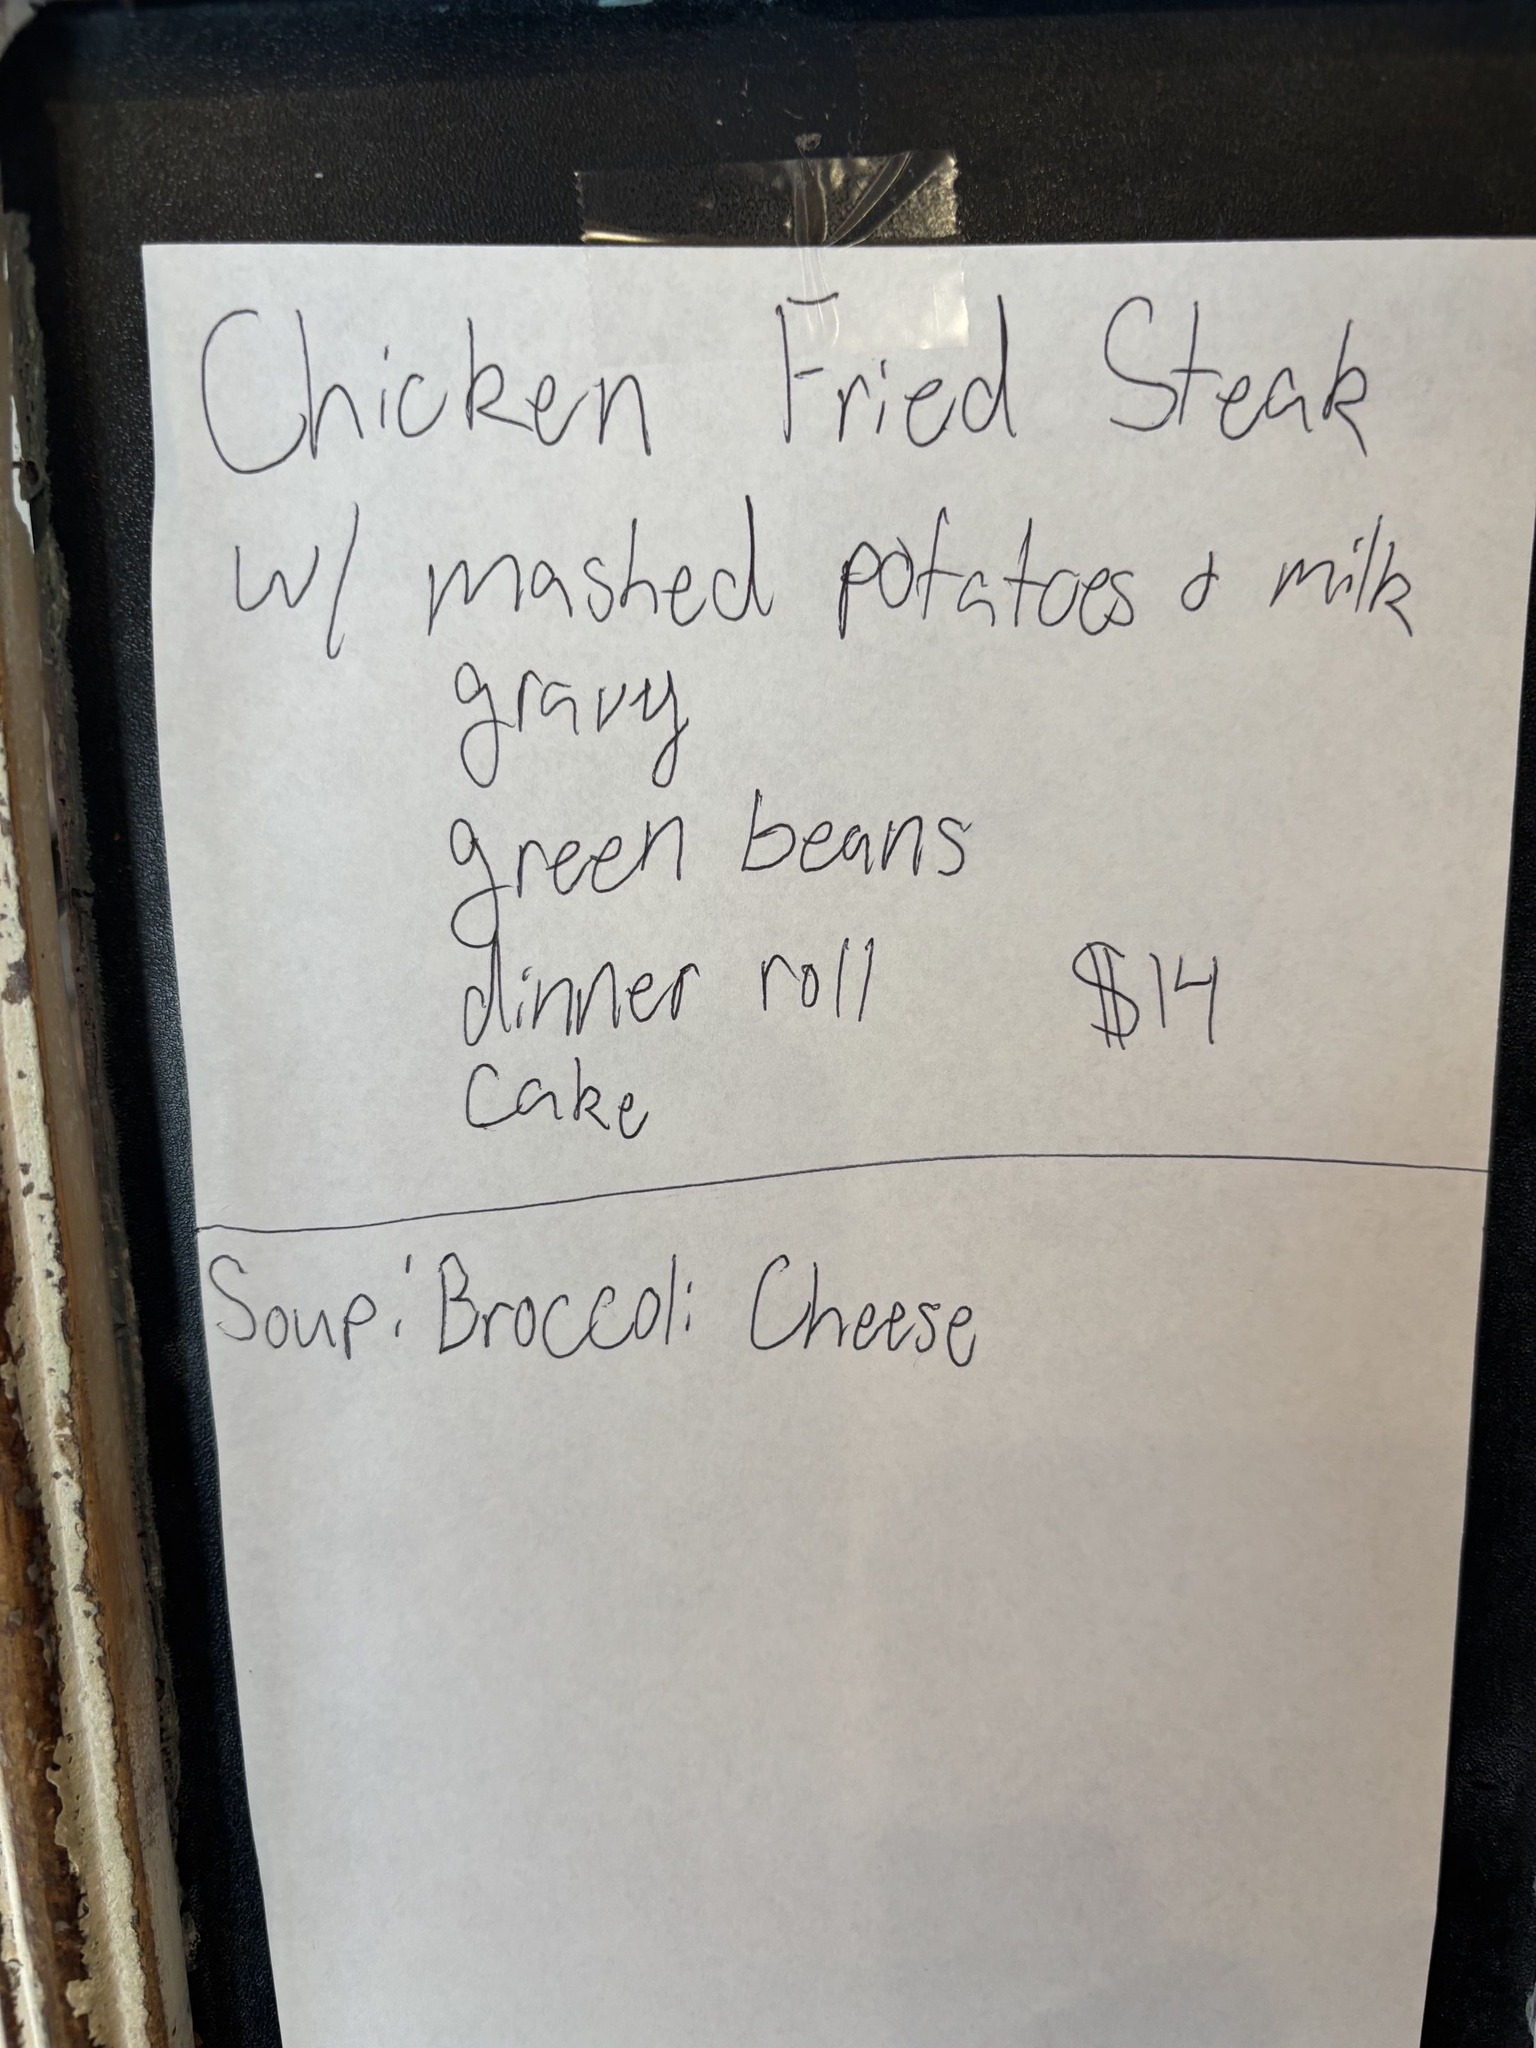 Chicken Fried Steak
w/ mashed potatoes & milk
gravy
green beans
dinner roll $14
cake
Soup: Broccoli Cheese